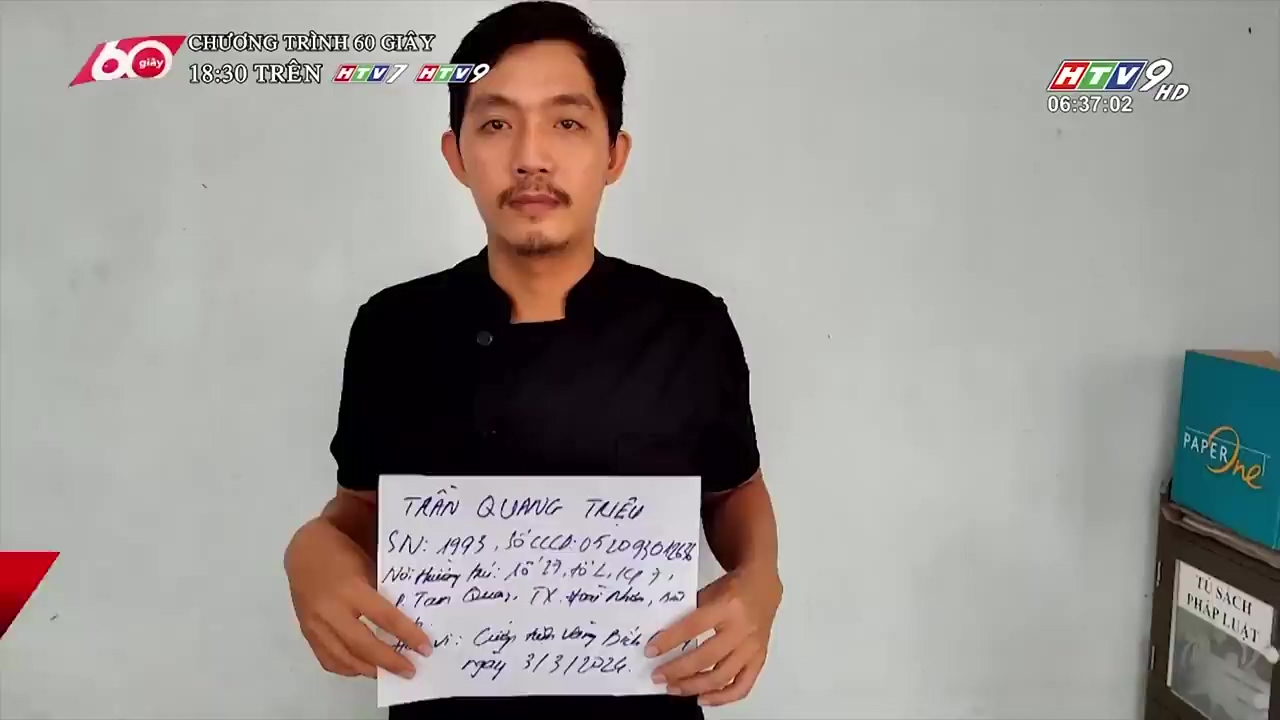 60 giây
CHƯƠNG TRÌNH 60 GIÂY
18:30 TRÊN HTV7 HTV9
HTV9 HD
06:37:02
TRẦN QUANG TRIỆU
SN: 1993, Số CCCD:
Nơi thường trú: Số 27, tổ 2, KP 7,
P. Tam Quan, TX. Hoài Nhơn,
vi: Cướp tiệm vàng
ngày 3/3/2024.
PAPER One
TỦ SÁCH
PHÁP LUẬT